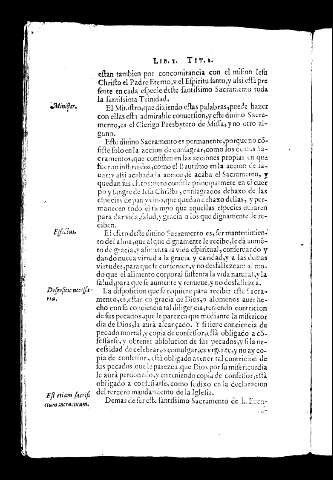 LIB. I. TIT. I.
estan tambien por concomitancia con el mismo Iesu
Christo el Padre Eterno, y el Espiritu santo, y assi está pre
sente en cada especie deste santissimo Sacramento toda
la santissima Trinidad.
Ministro.
El Ministro, que diziendo estas palabras, puede hazer
con ellas esta admirable conuersion, y este diuino Sacra-
mento, es el Clerigo Presbytero de Missa, y no otro al-
guno.
Este diuino Sacramento es permanente, porque no cõ-
siste solo en la accion de consagrar, como los demas Sa-
cramentos, que consisten en las acciones proprias en que
fueron instituidos, como el Bautismo en la accion de la-
uar: y assi acabada la accion, se acaba el Sacramento, y
este consiste principalmente en el cuer
po y sangre de Iesu Christo, consagrados debaxo de las
especies de pan y vino, que quedan debaxo dellas, y per-
manecen todo el tiempo que aquellas especies duraren
para dar vida, salud, y gracia a los que dignamente le re-
ciben.
Efectos.
El efecto deste diuino Sacramento es, ser mantenimien-
to del alma, que al que dignamente le recibe, le da aumẽ-
to de gracia, y alimenta la vida espiritual, conseruando y
dando nueua virtud a la gracia y caridad, y a las demas
virtudes, para que se conserue, y no desfallezca: a mo-
do que el alimento corporal sustenta la vida natural, y la
salud, para que se aumente y renueue, y no desfallezca.
La disposicion que se requiere para recibir este Sacra-
mento, es, estar en gracia de Dios, o alomenos auer he-
cho en su conciencia tal diligencia, teniendo contricion
de sus pecados, que le parezca que mediante la misericor
dia de Dios, la aurá alcançado. Y si tiene conciencia de
pecado mortal, y copia de confessor, está obligado a cõ-
fessarse, y obtener absolucion de sus pecados, y si la ne-
cessidad de celebrar, o comulgar, es vrgente, y no ay co-
pia de confessor, está obligado a tener tal contricion de
sus pecados que le parezca que Dios por su misericordia
le aurá perdonado, y en teniendo copia de confessor, está
obligado a confessarse, como se dixo en la declaracion
del tercero mandamiento de la Iglesia.
Est etiam sacrifi
cium
Demas de ser este santissimo Sacramento de la Euca-